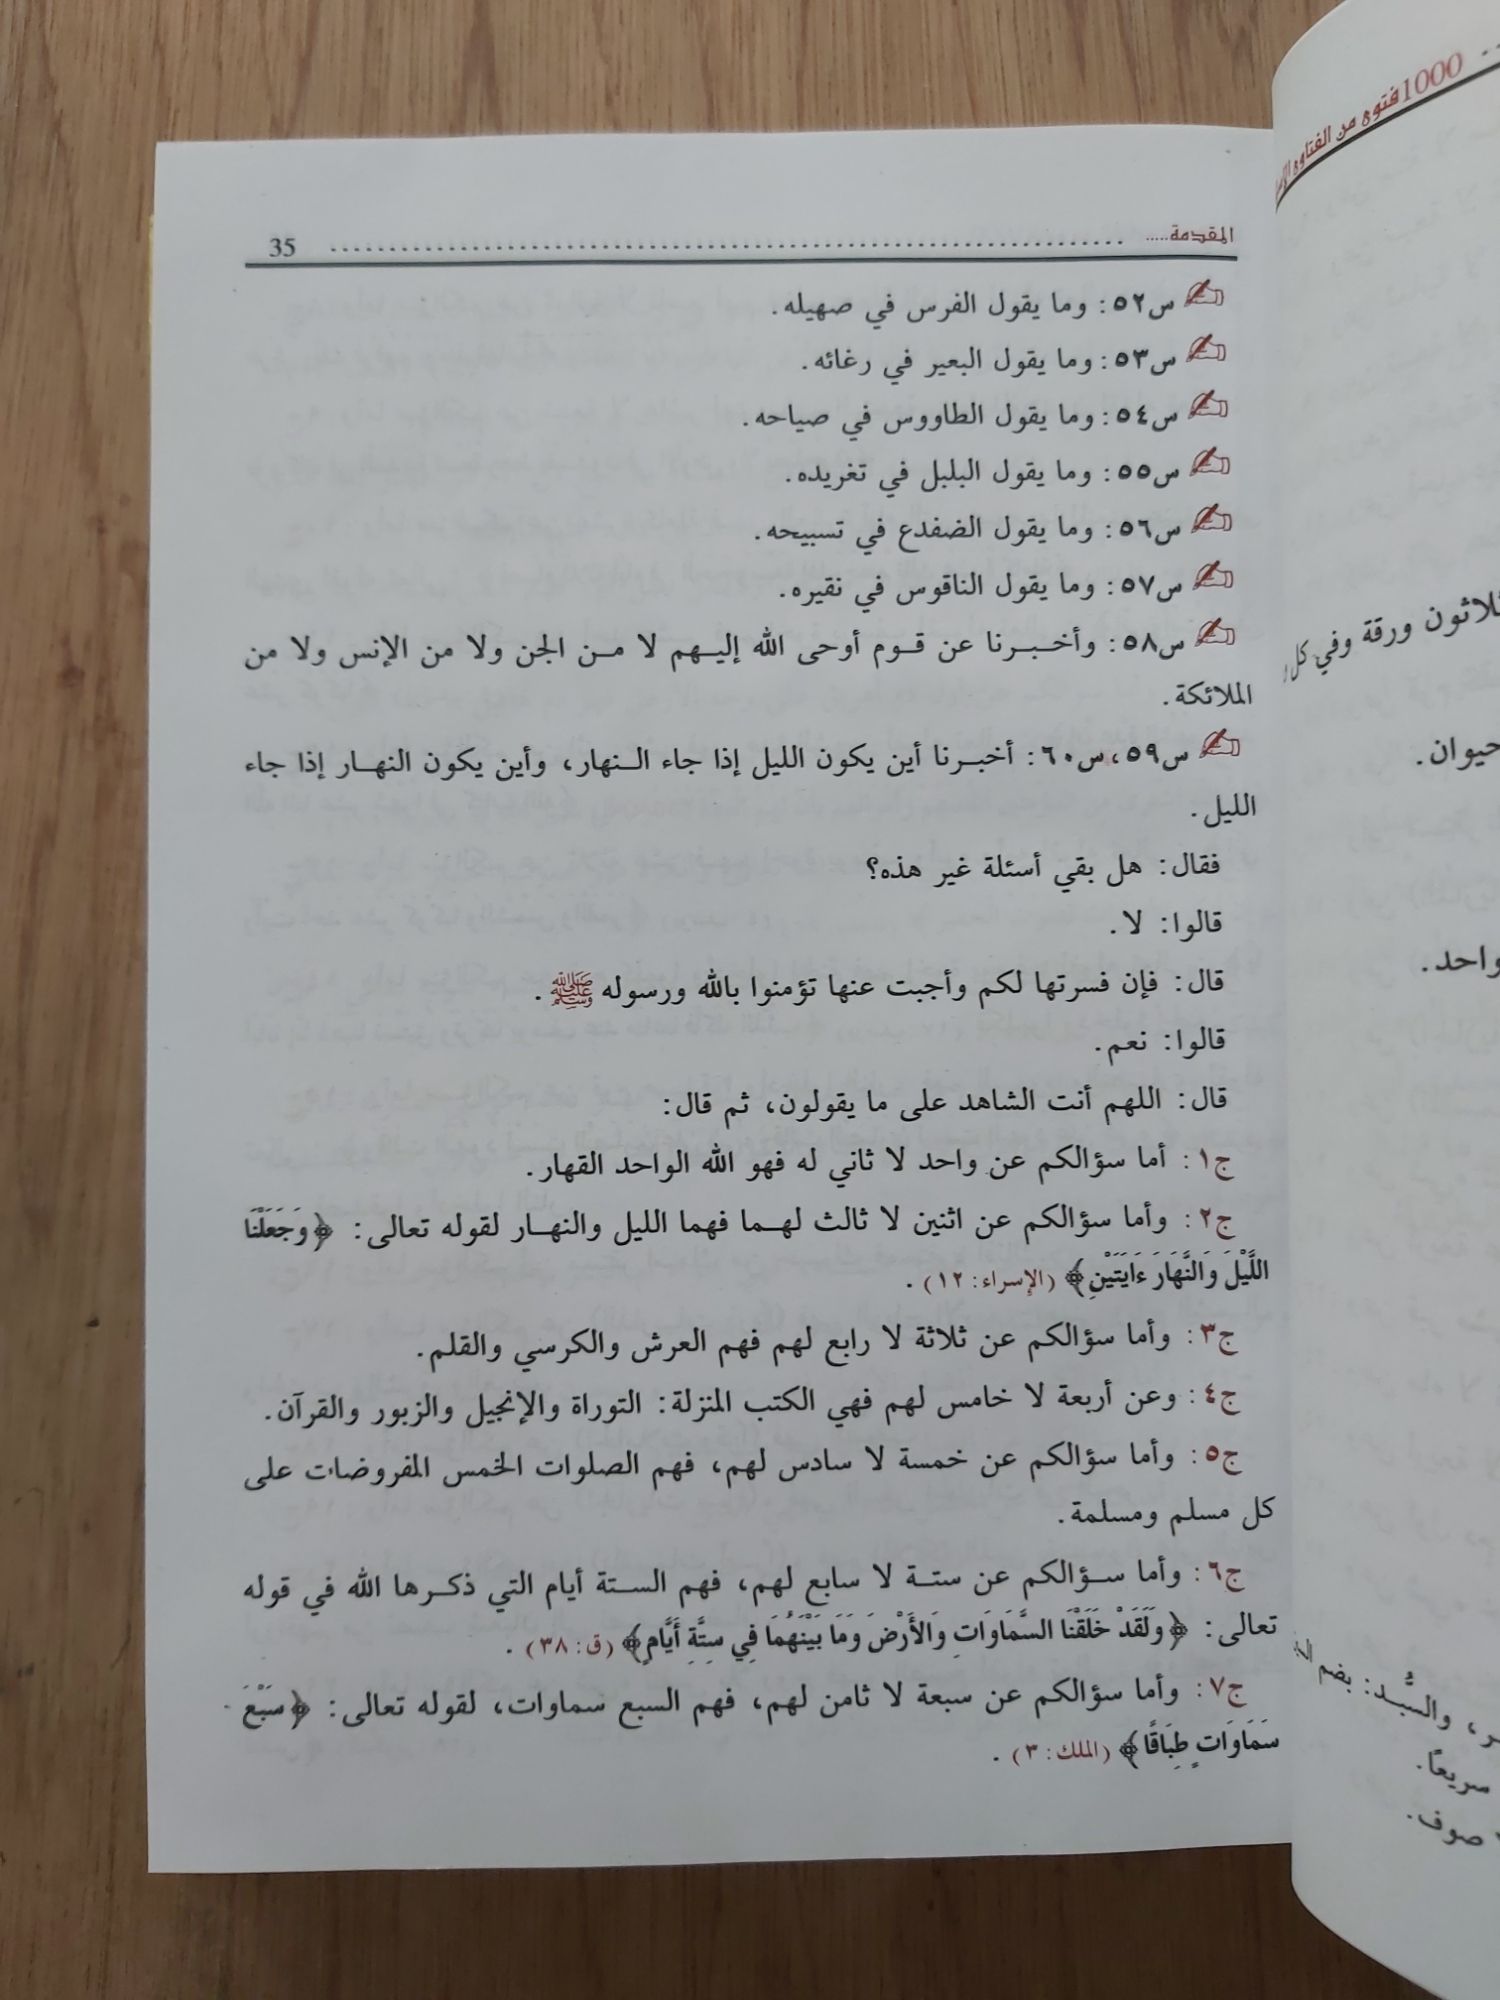 المقدمة..... 35
س٥٢: وما يقول الفرس في صهيله.
س٥٣: وما يقول البعير في رغائه.
س٥٤: وما يقول الطاووس في صياحه.
س٥٥: وما يقول البلبل في تغريده.
س٥٦: وما يقول الضفدع في تسبيحه.
س٥٧: وما يقول الناقوس في نقيره.
س٥٨: وأخبرنا عن قوم أوحى الله إليهم لا من الجن ولا من الإنس ولا من
الملائكة.
س٥٩، س٦٠: أخبرنا أين يكون الليل إذا جاء النهار، وأين يكون النهار إذا جاء
الليل.
فقال: هل بقي أسئلة غير هذه؟
قالوا: لا.
قال: فإن فسرتها لكم وأجبت عنها تؤمنوا بالله ورسوله ﷺ.
قالوا: نعم.
قال: اللهم أنت الشاهد على ما يقولون، ثم قال:
ج١: أما سؤالكم عن واحد لا ثاني له فهو الله الواحد القهار.
ج٢: وأما سؤالكم عن اثنين لا ثالث لهما فهما الليل والنهار لقوله تعالى: ﴿وَجَعَلْنَا
اللَّيْلَ وَالنَّهَارَ ءَايَتَيْنِ﴾ (الإسراء: ١٢).
ج٣: وأما سؤالكم عن ثلاثة لا رابع لهم فهم العرش والكرسي والقلم.
ج٤: وعن أربعة لا خامس لهم فهي الكتب المنزلة: التوراة والإنجيل والزبور والقرآن.
ج٥: وأما سؤالكم عن خمسة لا سادس لهم، فهم الصلوات الخمس المفروضات على
كل مسلم ومسلمة.
ج٦: وأما سؤالكم عن ستة لا سابع لهم، فهم الستة أيام التي ذكرها الله في قوله
تعالى: ﴿وَلَقَدْ خَلَقْنَا السَّمَاوَاتِ وَالأَرْضَ وَمَا بَيْنَهُمَا فِي سِتَّةِ أَيَّامٍ﴾ (ق: ٣٨).
ج٧: وأما سؤالكم عن سبعة لا ثامن لهم، فهم السبع سماوات، لقوله تعالى: ﴿سَبْعَ
سَمَاوَاتٍ طِبَاقًا﴾ (الملك: ٣).
1000 فتوى من الفتاوى
ثلاثون ورقة وفي كل
حيوان.
واحد.
والسُّبَّد: بضم
سريعًا.
صوف.